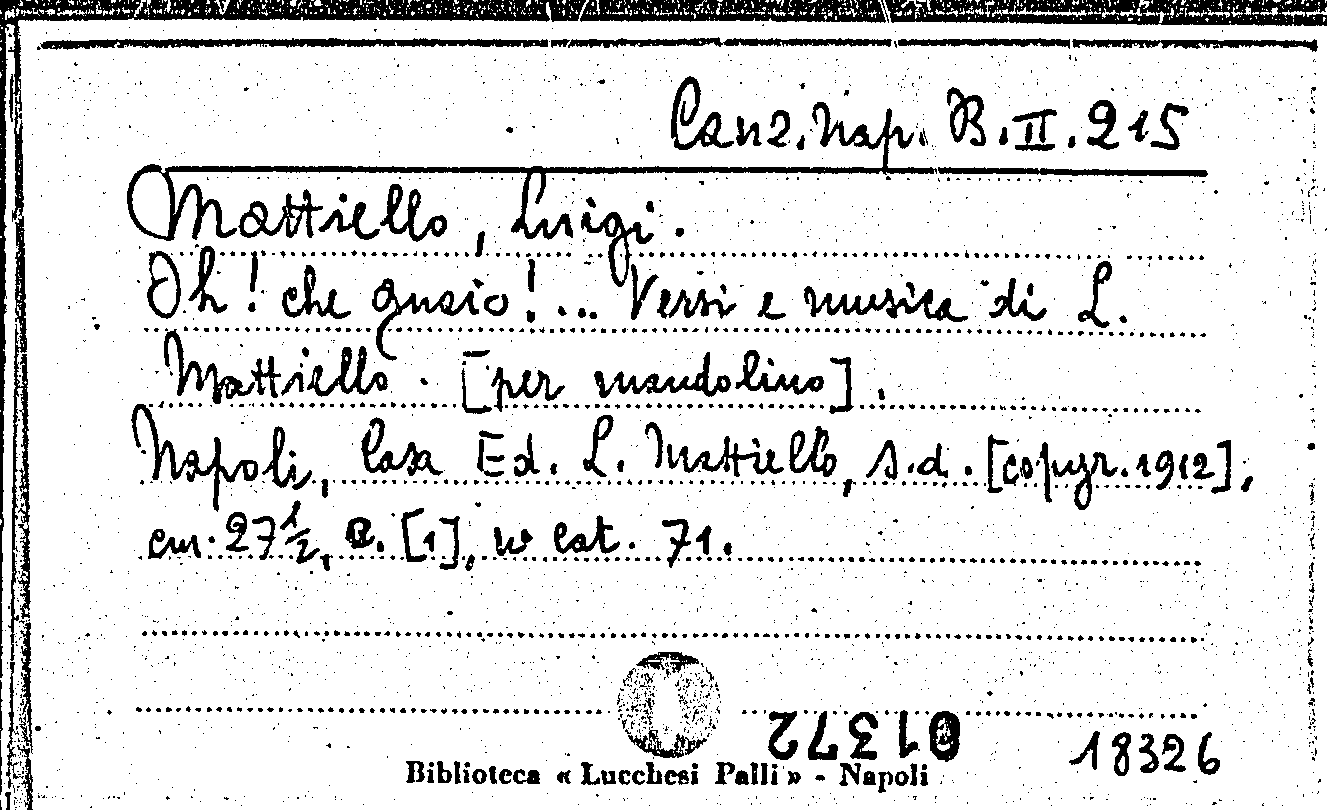 Canz. Nap. B. II. 215
Mattiello, Luigi.
Oh! che guaio!... Versi e musica di L.
Mattiello. [per mandolino].
Napoli, Casa Ed. L. Mattiello, s.d. [copyr. 1912],
cm. 27 1/2, C. [1], in cat. 71.
01372
18326
Biblioteca « Lucchesi Palli » - Napoli